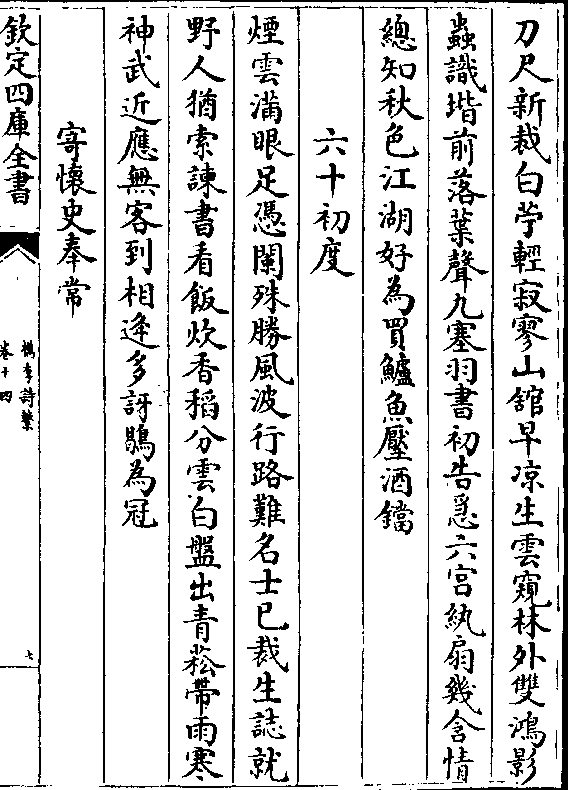 刀尺新裁白苧輕寂寥山舘早凉生雲窺林外雙鴻影
蟲識堦前落葉聲九塞羽書初告急六宫紈扇幾含情
總知秋色江湖好為買鱸魚壓酒鐺
六十初度
煙雲滿眼足憑闌殊勝風波行路難名士已裁生誌就
野人猶索諫書看飯炊香稻分雲白盤出青菘帶雨寒
神武近應無客到相逢多訝鶡為冠
寄懷史奉常
欽定四庫全書
檇李詩繫
卷十四
七